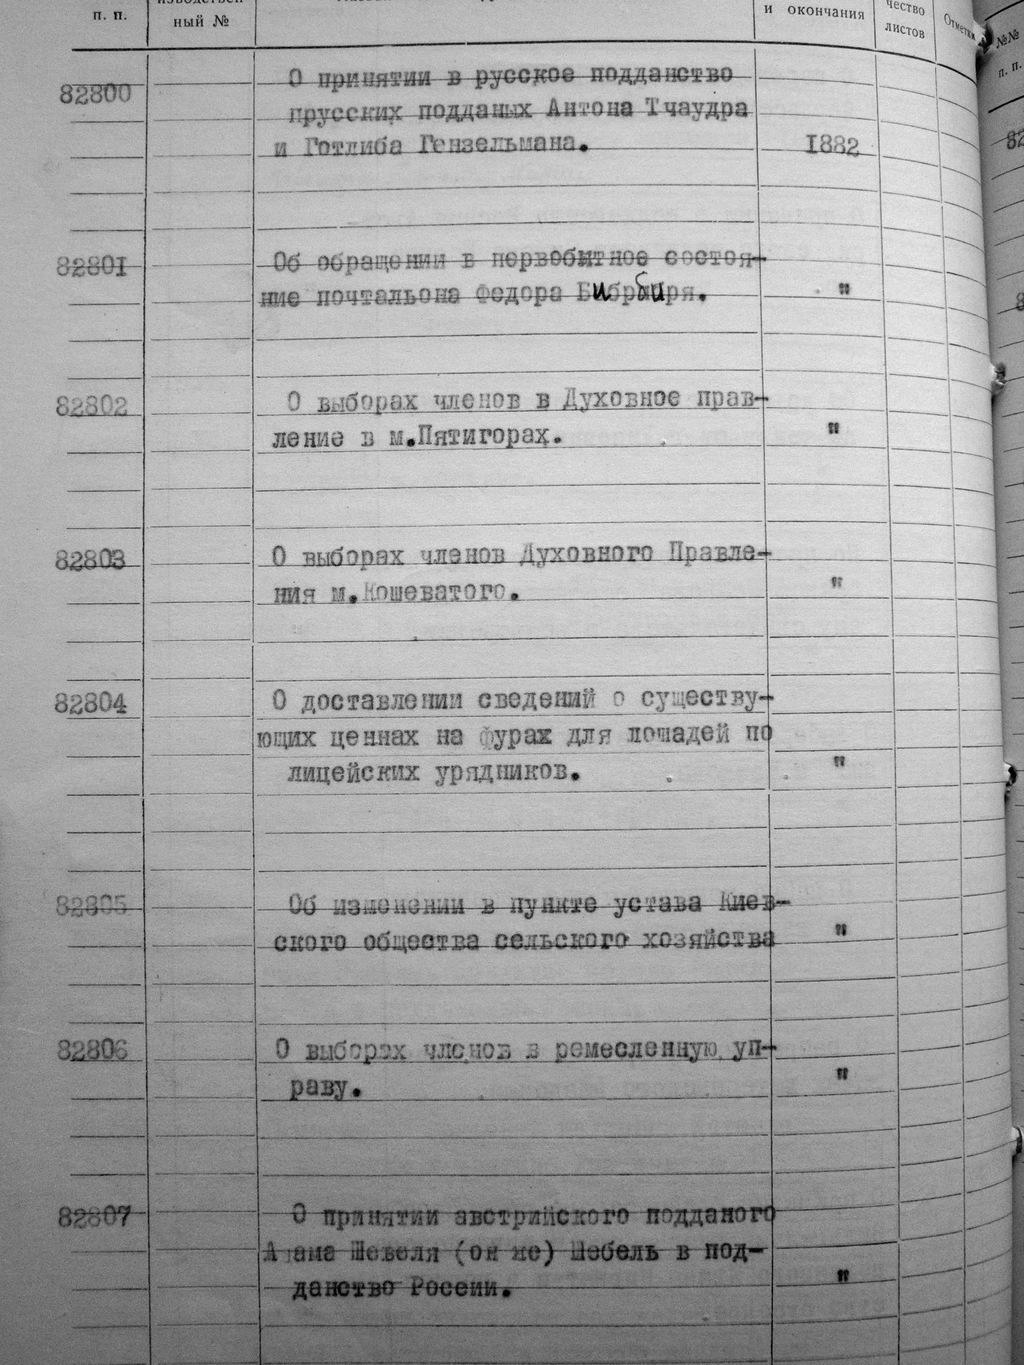 п. п.
ный №
и окончания
чество
листов
Отметки
№№
п. п.
82800
О принятии в русское подданство
прусских подданых Антона Тчаудра
и Готлиба Гензельмана.
1882
82801
Об обращении в первобытное состоя-
ние почтальона Федора Бибрбиря.
"
82802
О выборах членов в Духовное прав-
ление в м.Пятигорах.
"
82803
О выборах членов Духовного Правле-
ния м.Кошеватого.
"
82804
О доставлении сведений о существу-
ющих ценнах на фурах для лошадей по
лицейских урядников.
"
82805
Об изменении в пункте устава Киев-
ского общества сельского хозяйства
"
82806
О выборах членов в ремесленную уп-
раву.
"
82807
О принятии австрийского подданого
Адама Шевеля (он же) Шебель в под-
данство России.
"